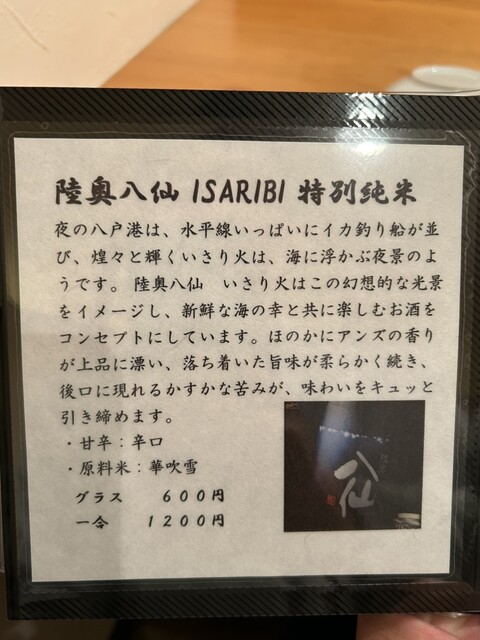 陸奥八仙 ISARIBI 特別純米
夜の八戸港は、水平線いっぱいにイカ釣り船が並
び、煌々と輝くいさり火は、海に浮かぶ夜景のよ
うです。 陸奥八仙　いさり火はこの幻想的な光景
をイメージし、新鮮な海の幸と共に楽しむお酒を
コンセプトにしています。ほのかにアンズの香り
が上品に漂い、落ち着いた旨味が柔らかく続き、
後口に現れるかすかな苦みが、味わいをキュッと
引き締めます。
・甘辛：辛口
・原料米：華吹雪
グラス　６００円
一合　１２００円
八仙